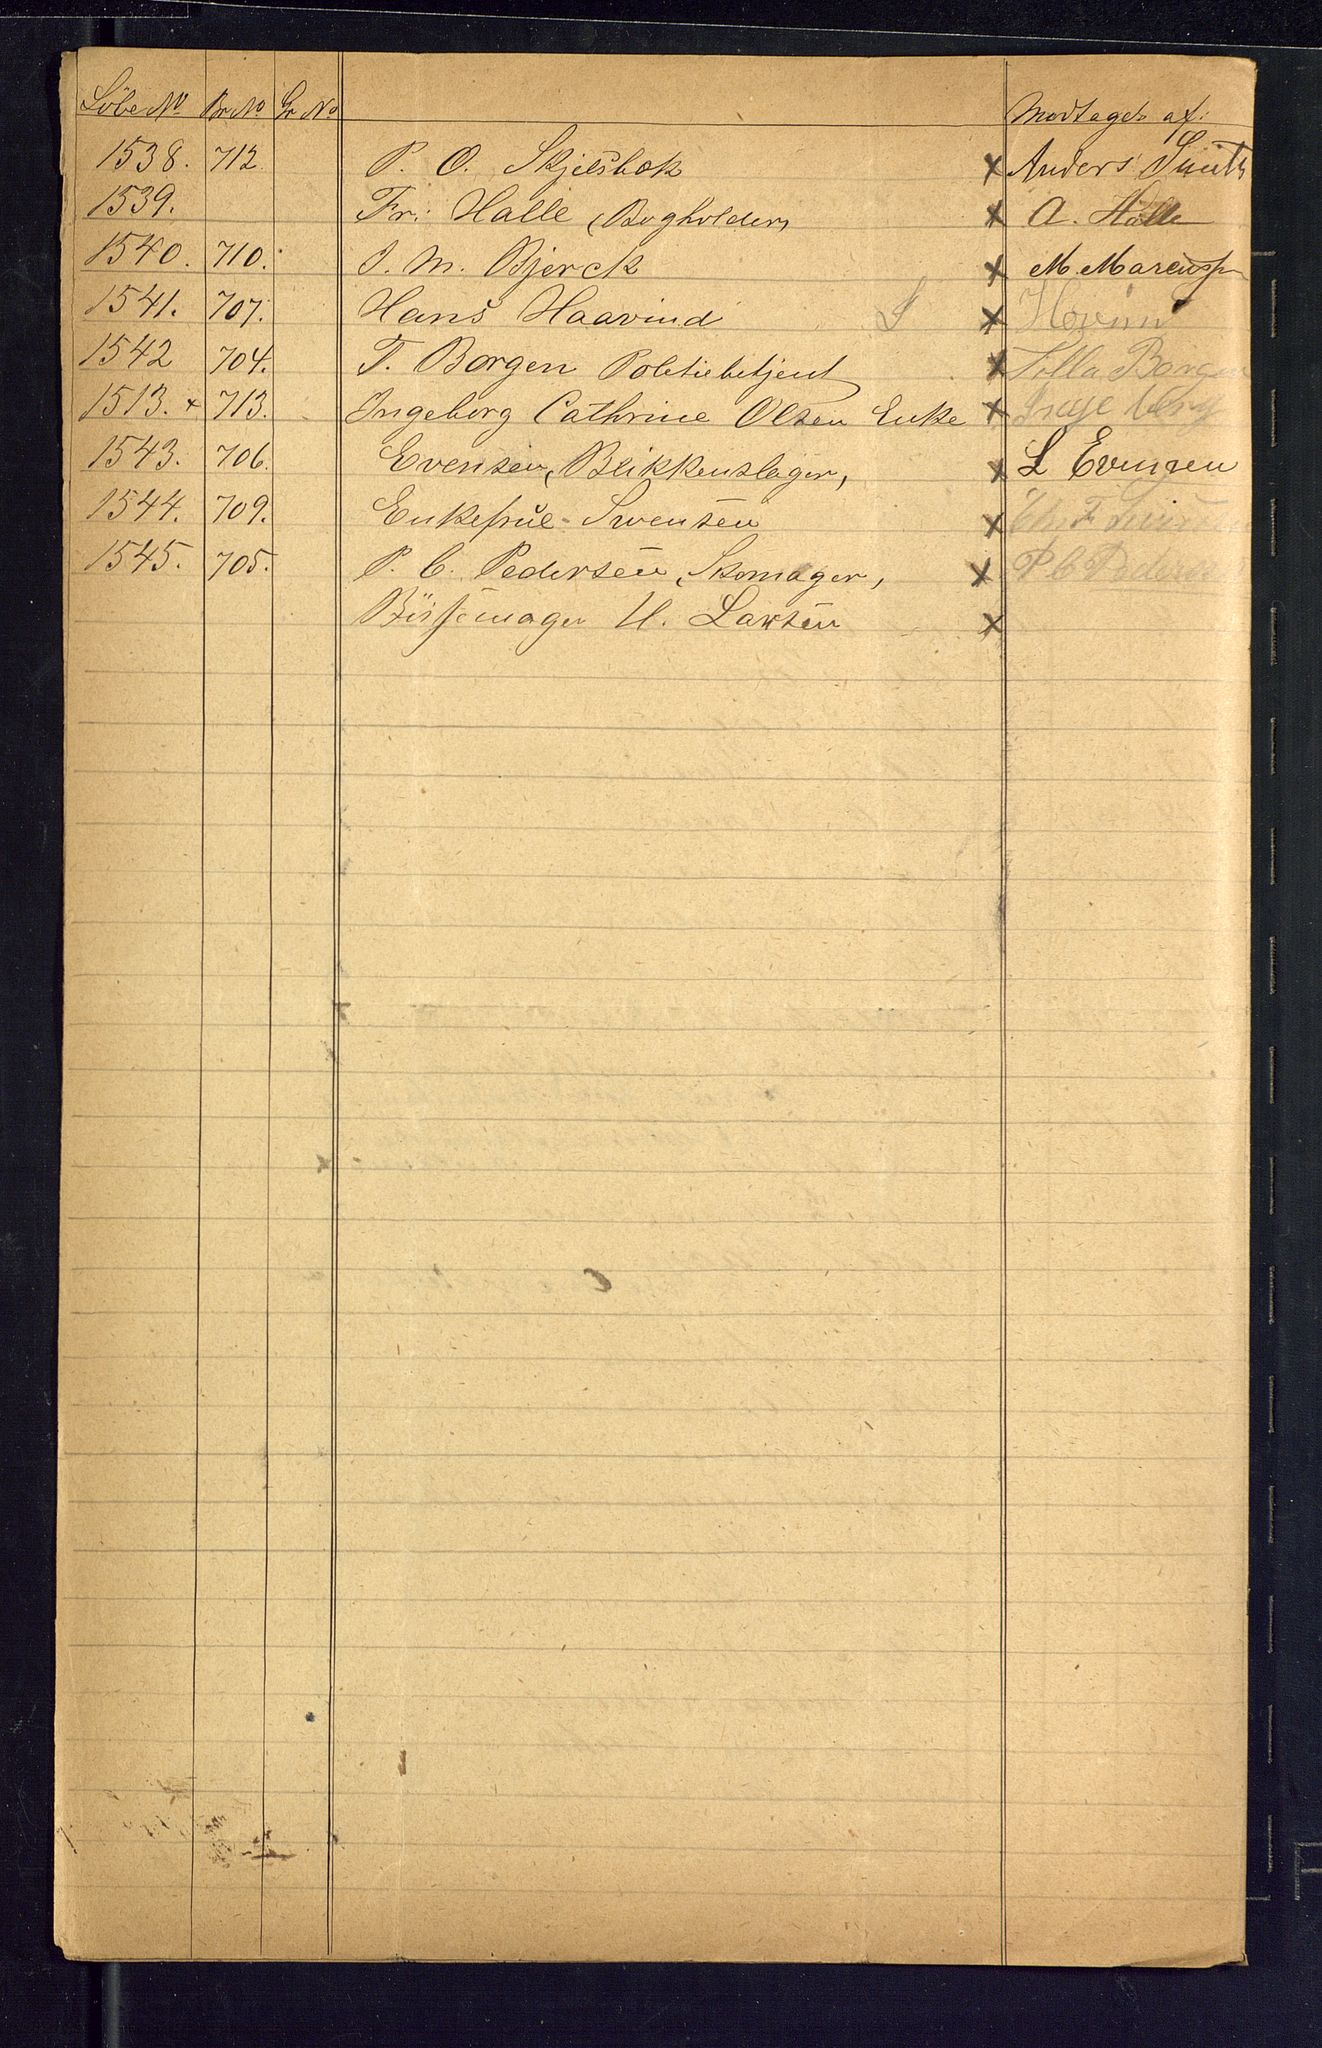 Löbe No. Br. No Gr No Modtaget af:
1538. 712 P. O. Skjelsbæk x Anders Smith
1539. Fr. Halle, Bogholder, x A. Halle
1540. 710. J. M. Bjerck x M. Marcussen
1541. 707. Hans Haavind S x
1542 704. T. Borgen Politiebetjent x Borgen
1513. x 713. Ingeborg Cathrine Olsen Enke x Ingeborg
1543. 706. Evensen, Blikkenslager, x L Evensen
1544. 709. Enkefrue Svensen x Chr
1545. 705. P. C. Pedersen, Skomager, x P C Pedersen
Bössemager H. Larsen x